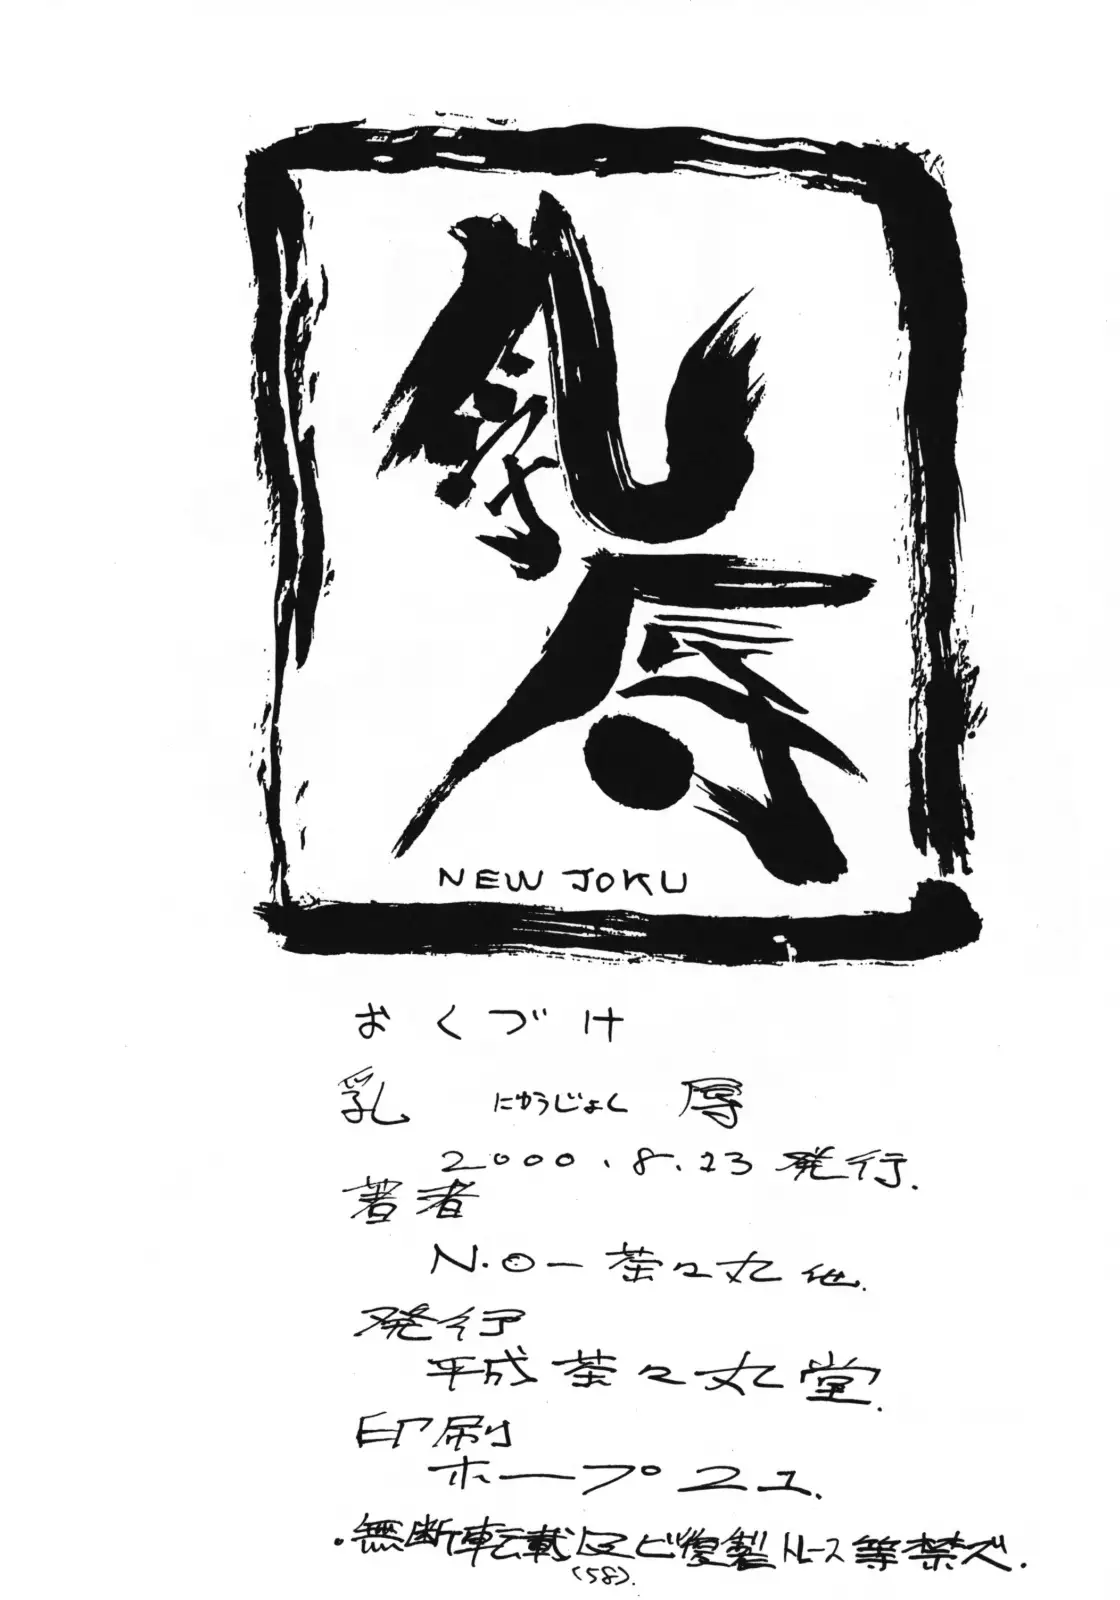 乳辱
NEW JOKU
おくづけ
乳 にゅうじょく 辱
2000.8.23 発行.
著者
N.O－茶々丸 他.
発行
平成茶々丸堂.
印刷
ホープ21.
・無断転載及び複製トレース等禁ズ.
(58).